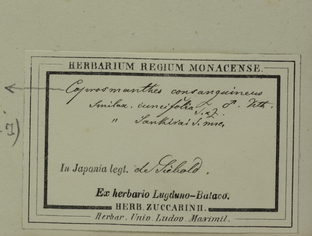 HERBARIUM REGIUM MONACENSE.
Coprosmanthus consanguineus
Smilax cuneifolia S. Z. ♂. Hb.
" Sankirai S. mss.
In Japonia legt. de Siebold.
Ex herbario Lugduno-Batavo.
HERB. ZUCCARINII.
Herbar. Univ. Ludov. Maximil.